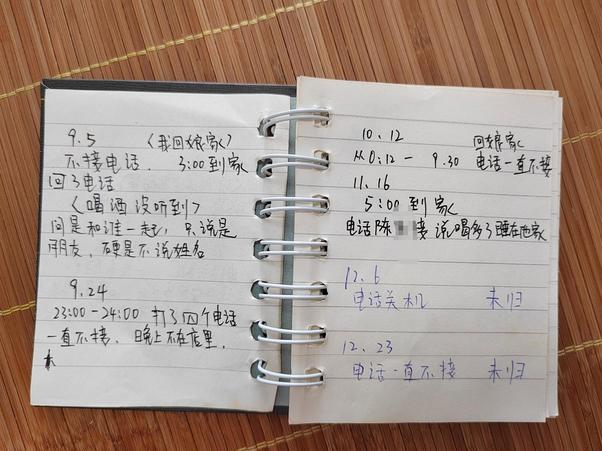 9.5 （我回娘家）
不接电话. 3:00到家
回了电话
（喝酒没听到）
问是和谁一起, 只说是
朋友, 硬是不说姓名
9.24
23:00-24:00 打了四个电话
一直不接, 晚上不在店里.
10.12 回娘家
从0:12 - 9.30 电话一直不接
11.16
5:00到家
电话陈 接 说喝多了睡在他家
12.6
电话关机 未归
12.23
电话一直不接 未归